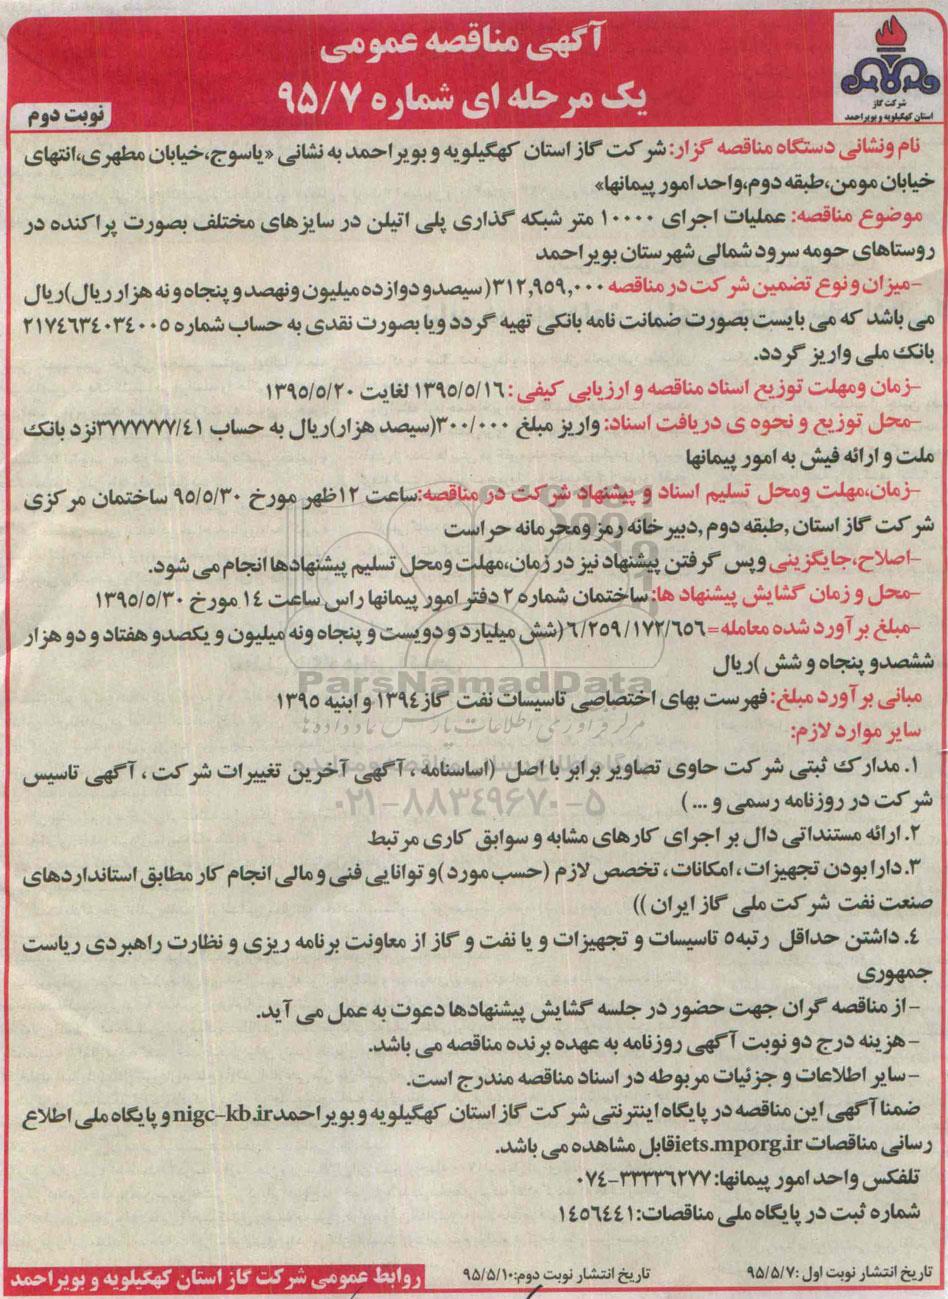 آگهی مناقصه عمومی
یک مرحله ای شماره ۹۵/۷
نوبت دوم
شرکت گاز
استان کهگیلویه و بویراحمد
نام ونشانی دستگاه مناقصه گزار: شرکت گاز استان کهگیلویه و بویراحمد به نشانی «یاسوج،خیابان مطهری،انتهای
خیابان مومن،طبقه دوم،واحد امور پیمانها»
موضوع مناقصه: عملیات اجرای ۱۰۰۰۰ متر شبکه گذاری پلی اتیلن در سایزهای مختلف بصورت پراکنده در
روستاهای حومه سرود شمالی شهرستان بویراحمد
-میزان و نوع تضمین شرکت در مناقصه ۳۱۲,۹۵۹,۰۰۰( سیصدو دوازده میلیون ونهصد و پنجاه و نه هزار ریال)ریال
می باشد که می بایست بصورت ضمانت نامه بانکی تهیه گردد ویا بصورت نقدی به حساب شماره ۲۱۷۴۶۳۴۰۳۴۰۰۵
بانک ملی واریز گردد.
-زمان ومهلت توزیع اسناد مناقصه و ارزیابی کیفی : ۱۳۹۵/۵/۱۶ لغایت ۱۳۹۵/۵/۲۰
-محل توزیع و نحوه ی دریافت اسناد: واریز مبلغ ۳۰۰/۰۰۰(سیصد هزار)ریال به حساب ۳۷۷۷۷۷۷/۴۱نزد بانک
ملت و ارائه فیش به امور پیمانها
-زمان،مهلت ومحل تسلیم اسناد و پیشنهاد شرکت در مناقصه:ساعت ۱۲ظهر مورخ ۹۵/۵/۳۰ ساختمان مرکزی
شرکت گاز استان ,طبقه دوم ,دبیرخانه رمز ومحرمانه حراست
-اصلاح،جایگزینی وپس گرفتن پیشنهاد نیز در زمان،مهلت ومحل تسلیم پیشنهادها انجام می شود.
-محل و زمان گشایش پیشنهاد ها: ساختمان شماره ۲ دفتر امور پیمانها راس ساعت ۱۴ مورخ ۱۳۹۵/۵/۳۰
-مبلغ برآورد شده معامله= ۶/۲۵۹/۱۷۲/۶۵۶ (شش میلیارد و دویست و پنجاه ونه میلیون و یکصدو هفتاد و دو هزار
ششصدو پنجاه و شش )ریال
مبانی برآورد مبلغ: فهرست بهای اختصاصی تاسیسات نفت گاز ۱۳۹۴ و ابنیه ۱۳۹۵
سایر موارد لازم:
ParsNamadData
۰۲۱-۸۸۳۴۹۶۷۰-۵
۱. مدارک ثبتی شرکت حاوی تصاویر برابر با اصل (اساسنامه ، آگهی آخرین تغییرات شرکت ، آگهی تاسیس
شرکت در روزنامه رسمی و ... )
۲. ارائه مستنداتی دال بر اجرای کارهای مشابه و سوابق کاری مرتبط
۳. دارا بودن تجهیزات ، امکانات ، تخصص لازم (حسب مورد )و توانایی فنی و مالی انجام کار مطابق استانداردهای
صنعت نفت شرکت ملی گاز ایران ))
۴. داشتن حداقل رتبه۵ تاسیسات و تجهیزات و یا نفت و گاز از معاونت برنامه ریزی و نظارت راهبردی ریاست
جمهوری
- از مناقصه گران جهت حضور در جلسه گشایش پیشنهادها دعوت به عمل می آید.
- هزینه درج دو نوبت آگهی روزنامه به عهده برنده مناقصه می باشد.
- سایر اطلاعات و جزئیات مربوطه در اسناد مناقصه مندرج است.
ضمنا آگهی این مناقصه در پایگاه اینترنتی شرکت گاز استان کهگیلویه و بویراحمدnigc-kb.ir و پایگاه ملی اطلاع
رسانی مناقصات iets.mporg.irقابل مشاهده می باشد.
تلفکس واحد امور پیمانها: ۳۳۳۳۶۲۷۷-۰۷۴
شماره ثبت در پایگاه ملی مناقصات:۱۴۵۶۴۴۱
تاریخ انتشار نوبت اول :۹۵/۵/۷
تاریخ انتشار نوبت دوم:۹۵/۵/۱۰
روابط عمومی شرکت گاز استان کهگیلویه و بویراحمد